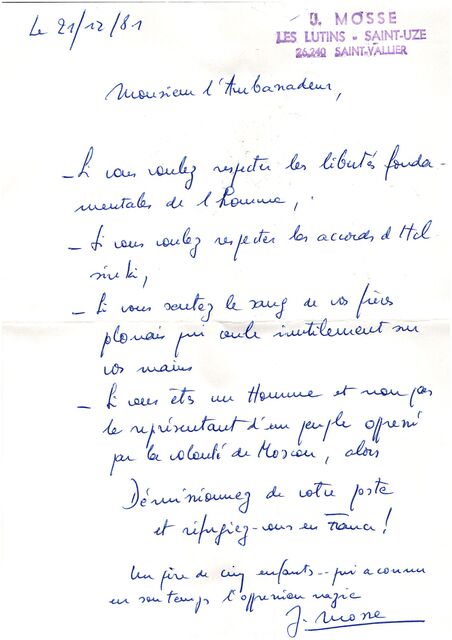 Le 21/12/81
J. MOSSE
LES LUTINS - SAINT-UZE
26240 SAINT-VALLIER
Monsieur l'Ambassadeur,
- Si vous voulez respecter les libertés fonda-
mentales de l'homme,
- Si vous voulez respecter les accords d'Hel
sinki,
- Si vous sentez le sang de vos frères
polonais qui coule inutilement sur
vos mains
- Si vous êtes un Homme et non pas
le représentant d'un peuple opprimé
par la volonté de Moscou, alors
Démissionnez de votre poste
et réfugiez-vous en France !
Un père de cinq enfants -- qui a connu
en son temps l'oppression nazie
J. Mosse